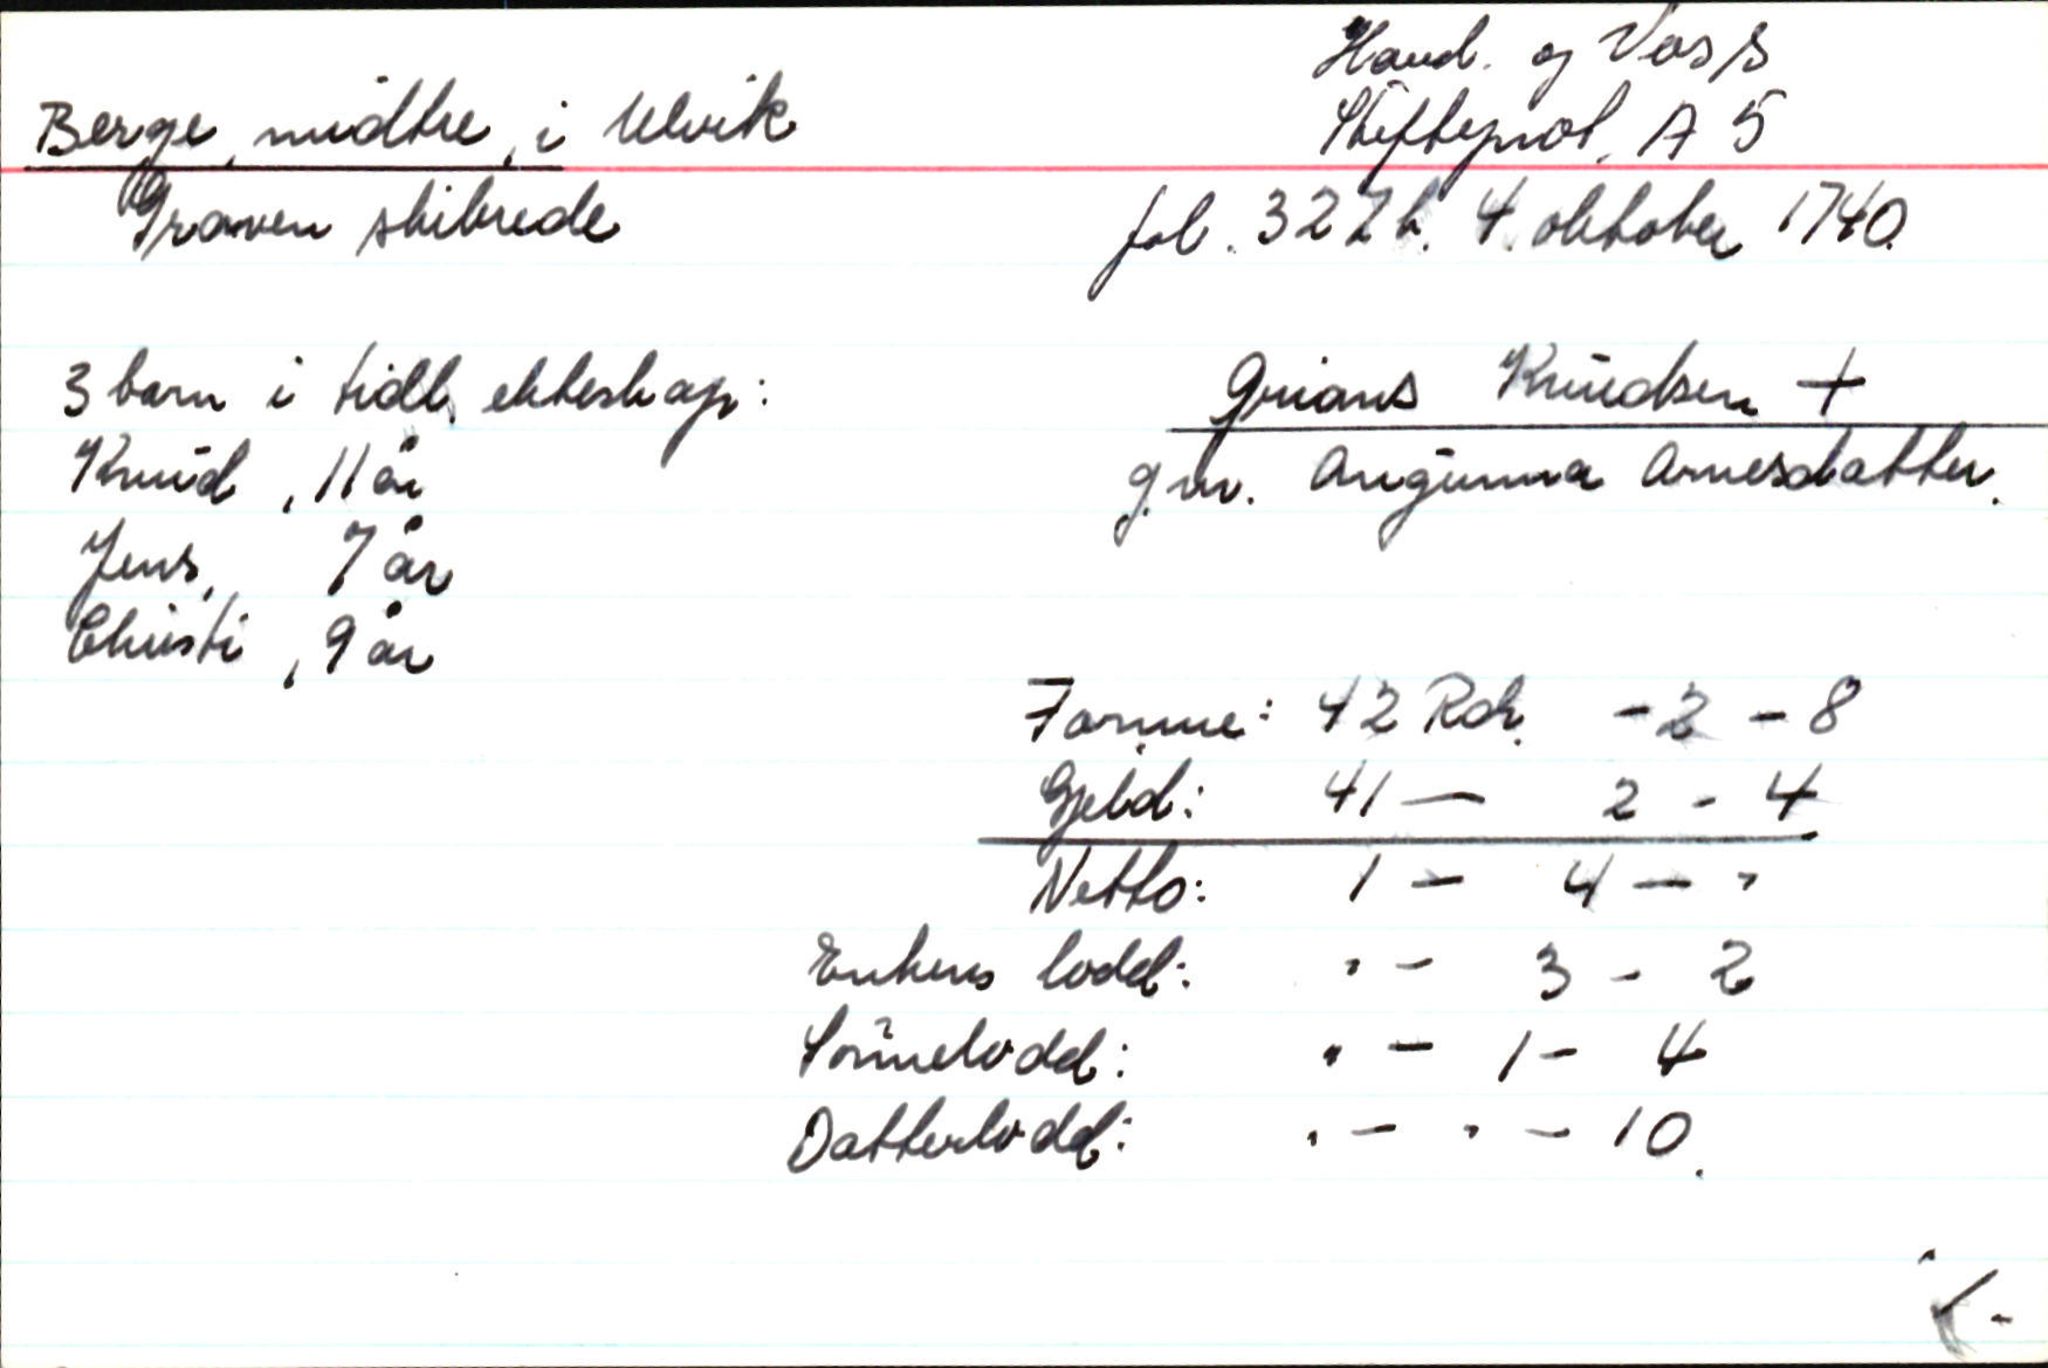 Hard. og Voss
Berge, midtre, i Ulvik
Skifteprot. A 5
Graven skibrede
fol. 327 b. 4. oktober 1740.
3 barn i tidl. ekteskap:
Knud, 11 år
Jens, 7 år
Christi, 9 år
Grians Knudsen +
g.m. Angunna Arnesdatter.
Formue: 42 Rdr. - 2 - 8
Gjeld: 41 — 2 - 4
Netto: 1 — 4 — "
Enkens lodd: " - 3 - 2
Sønnelodd: " — 1 - 4
Datterlodd: " — " — 10.